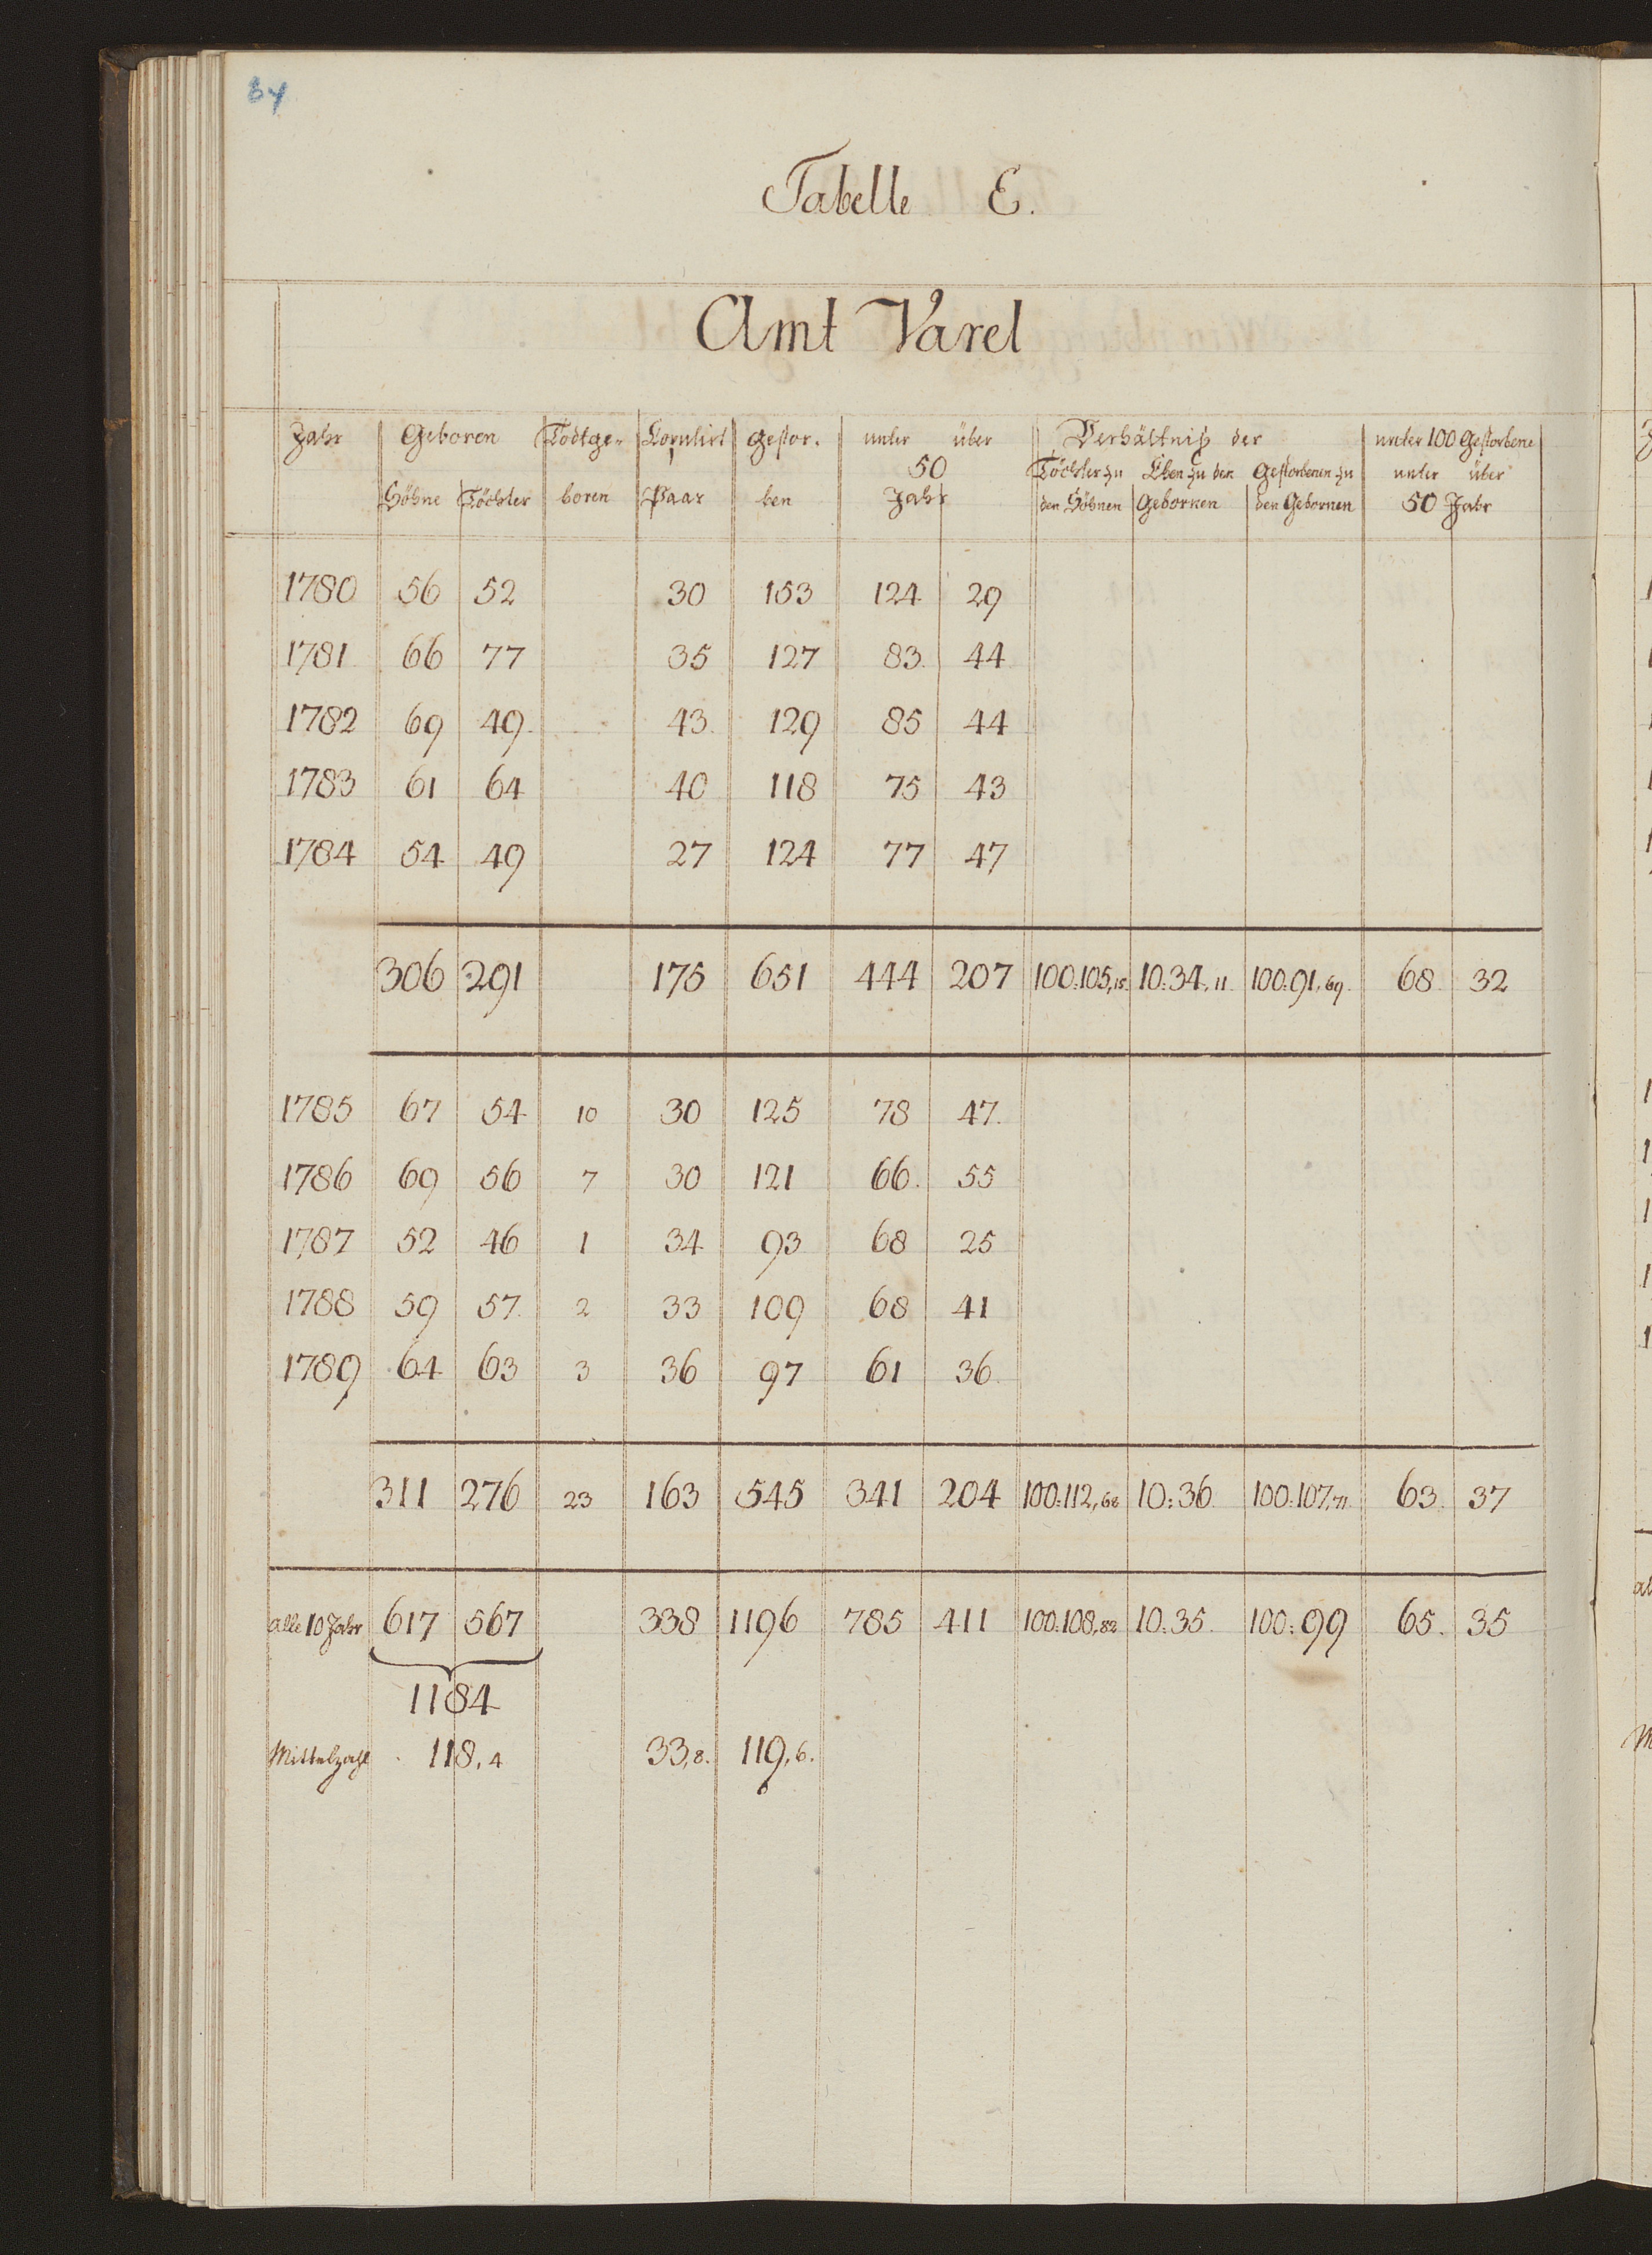 84
Tabelle E.
Amt Varel
Jahr Geboren Todtge- Copulirt gestor. unter über Verhältniß der unter 100 Gestorbene
50 Töchter zu Ehen zu den Gestorbenen zu unter über
Söhne Töchter boren Paar ben Jahr den Söhnen Gebornen den Gebornen 50 Jahr
1780 56 52 30 153 124 29
1781 66 77 35 127 83 44
1782 69 49 43 129 85 44
1783 61 64 40 118 75 43
1784 54 49 27 124 77 47
306 291 175 651 444 207 100:105,15 10:34,11 100:91,69 68 32
1785 67 54 10 30 125 78 47
1786 69 56 7 30 121 66 55
1787 52 46 1 34 93 68 25
1788 59 57 2 33 109 68 41
1789 64 63 3 36 97 61 36
311 276 23 163 545 341 204 100:112,68 10:36 100:107,71 63 37
alle 10 Jahr 617 567 338 1196 785 411 100:108,82 10:35 100:99 65 35
1184
Mittelzahl 118,4 33,8. 119,6.